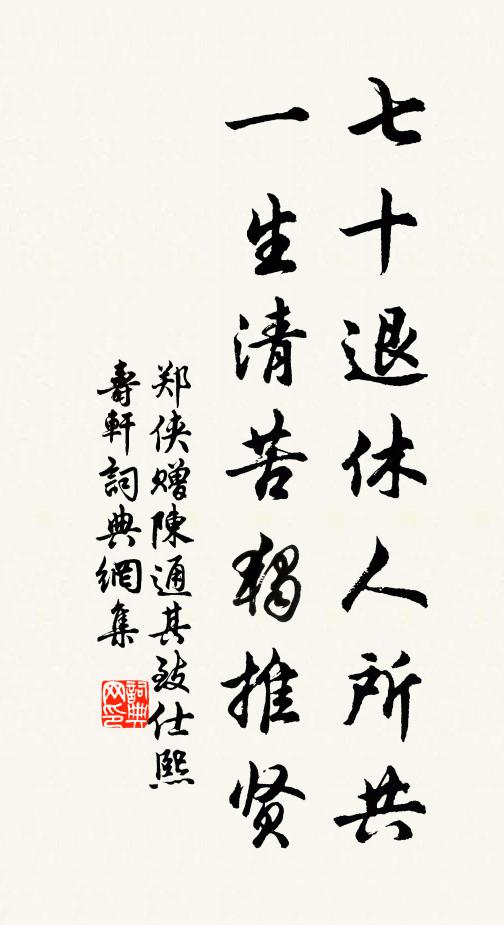 七十退休人所共
一生清苦独推贤
郑侠赠陳通其致仕熙
壽軒詞典網集
詞典网印